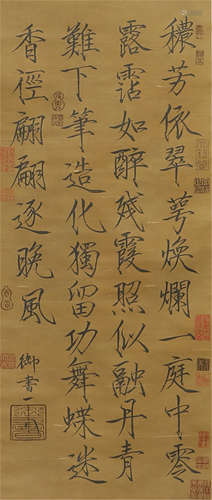 穠芳依翠萼煥爛一庭中零
露霑如醉殘霞照似融丹青
難下筆造化獨留功舞蝶迷
香徑翩翩逐晚風
御書